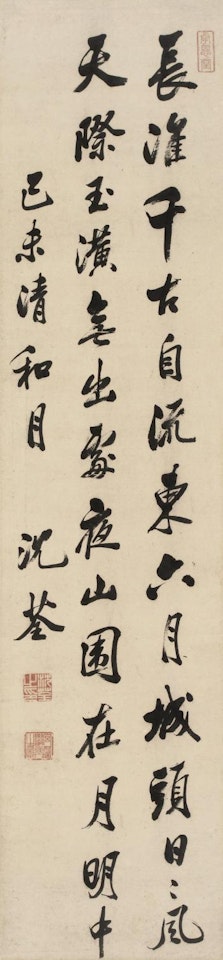 長淮千古自流東六月城頭日〻風
天際玉潢無出處夜山圍在月明中
己未清和月 沈荃